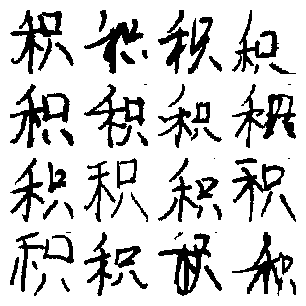 积积积积
积积积积
积积积积
积积积积